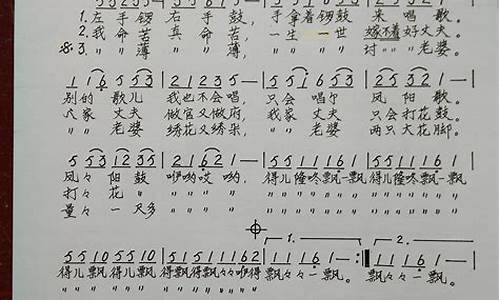 1. 左手锣 右手鼓, 手拿着锣鼓 来唱歌。
2. 我命苦 真命苦, 一生一世 嫁不着好丈夫。
3. 〃〃薄 〃〃薄, 〃〃〃〃 讨〃〃老婆。
1 1 6 5 5 3 | 2 1 2 3 5 — | 5 5 1 6 5 3 | 2 3 2 1 —
别的 歌儿 我也不会唱, 只会唱个 凤阳歌。
人家 丈夫 做官又做府, 我家丈夫 只会打花鼓。
〃〃 老婆 绣花又绣朵, 〃〃老婆 两只大花脚。
5 5 3 1 2 3 5 | 2 1 6 2 1 — | 5 5 1 1 1 6 1 | 5 5 1 1 1 6 1
凤々 阳鼓 咿哟哎哟, 得儿隆咚飘一飘得儿隆咚飘一飘
打々 花〃 〃〃〃〃
量々 一尺多 〃〃〃〃
1. 2.
5 5 1 0 5 5 1 0 | 5 5 1 5 1 1 6 2 | 1 1 1 6 1 — :‖ 1 1 1 6 1 — ‖
得儿飘得儿飘 得儿飘得儿飘々咿得儿 飘々々一飘。 飘飘々一飘。